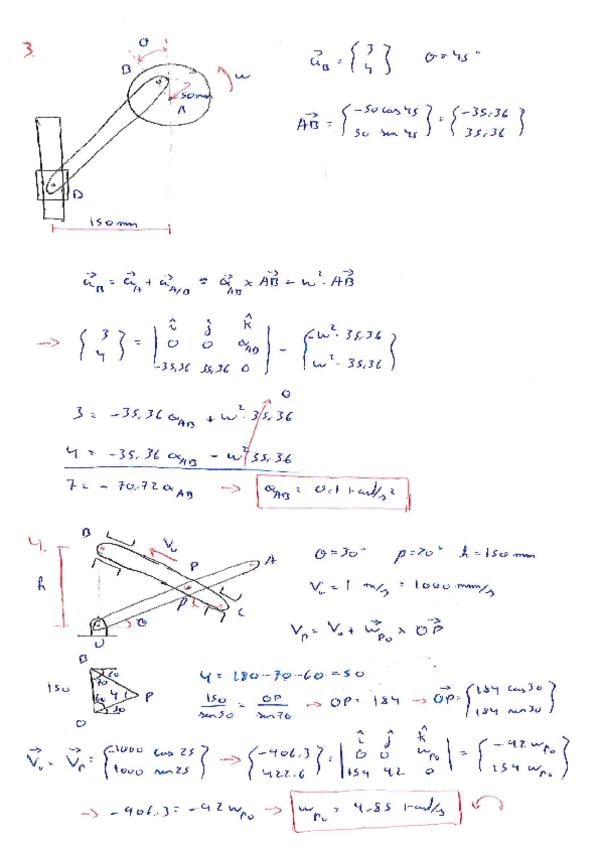 3.
θ
B
ω
50mm
A
D
150mm
a⃗_B = {3 4} θ = 45°
AB⃗ = {-50 cos 45 50 sen 45} = {-35.36 35.36}
a⃗_B = a⃗_A + a⃗_A/B = α⃗_AB × AB⃗ - ω² · AB⃗
→ {3 4} = | î ĵ k̂ 0 0 α_AB -35,36 35,36 0 | - {-ω² · 35,36 ω² · 35,36}
0
3 = -35,36 α_AB + ω² · 35,36
4 = -35,36 α_AB - ω² 35,36
7 = -70,72 α_AB → α_AB = 0.1 rad/s²
4.
B
V_o
A
P
h
β
C
θ
O
θ = 30° β = 20° h = 150 mm
V_o = 1 m/s = 1000 mm/s
V_P = V_o + ω⃗_PO × OP⃗
B
150
70
60
4
P
30
O
4 = 180 - 70 - 60 = 50
150/sen50 = OP/sen70 → OP = 184 → OP⃗ = {184 cos30 184 sen30}
V⃗_o = V⃗_P = {-1000 cos 25 1000 sen25} → {-906.3 422.6} = | î ĵ k̂ 0 0 ω_PO 154 92 0 | = {-92 ω_PO 154 ω_PO}
→ -906.3 = -92 ω_PO → ω_PO = 9.85 rad/s